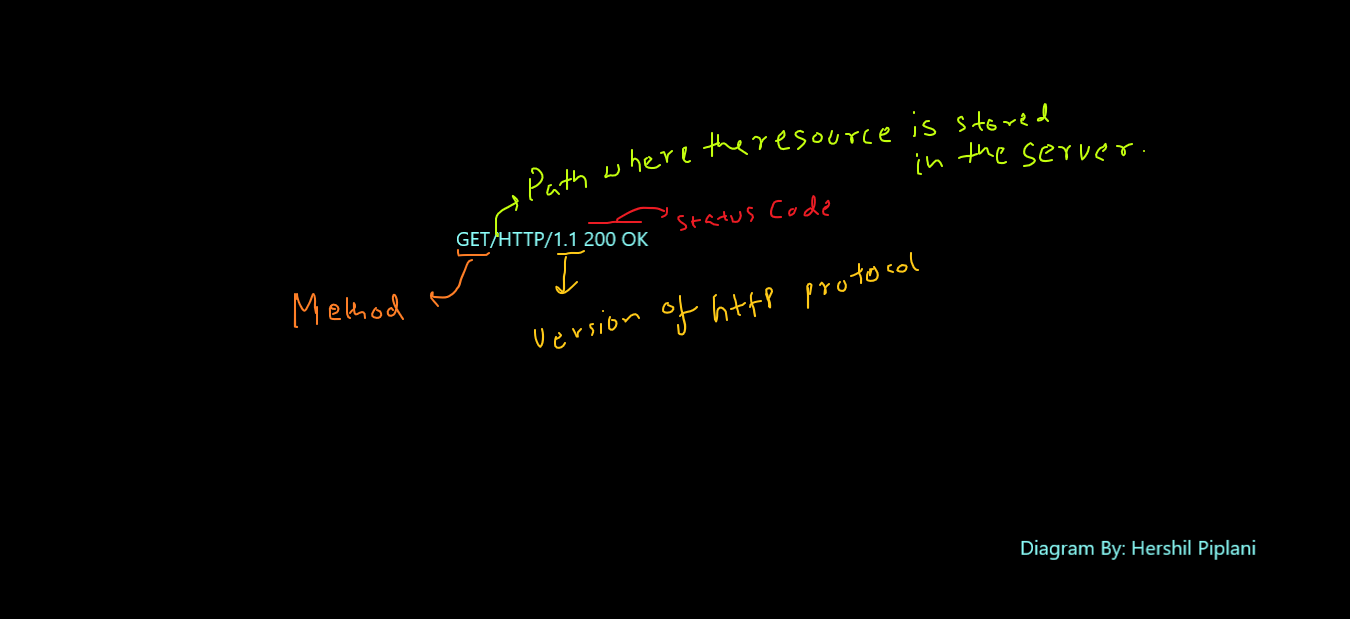 Path where the resource is stored
in the server.
status code
GET/HTTP/1.1 200 OK
Method
version of http protocol
Diagram By: Hershil Piplani